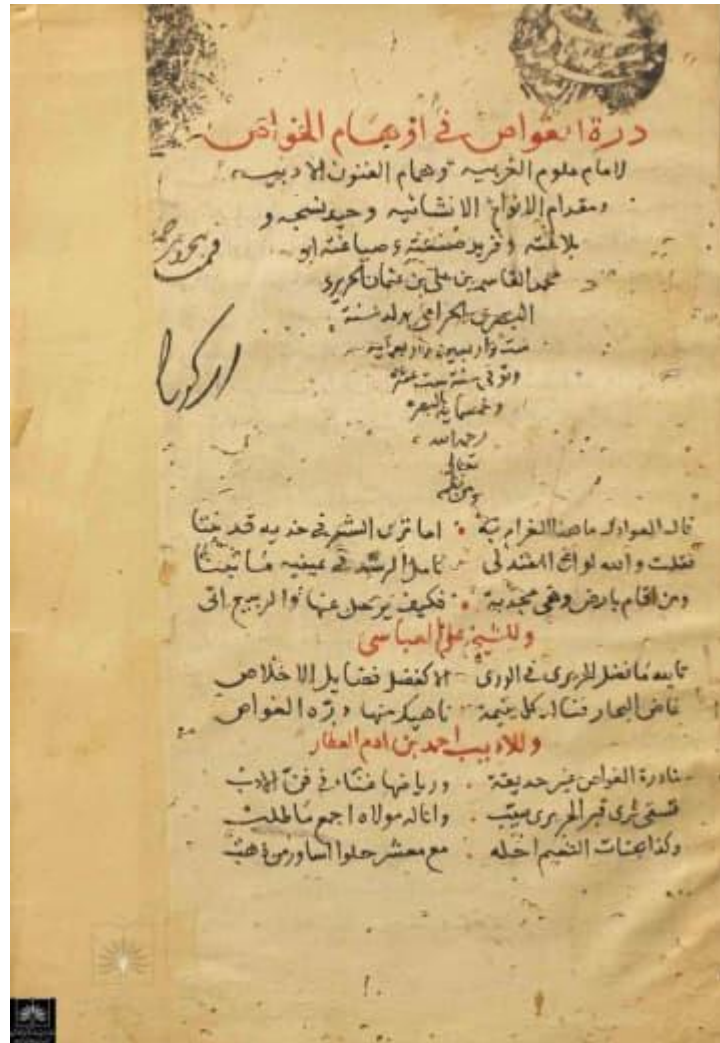 درة الغواص في اوهام الخواص
لامام علوم العربيه وهمام الفنون الادبيه
ومقدام الانواع الانشائيه وحيد نسجه و
بلاغته وفريد صنعته وصياغته ابو
محمد القاسم بن علي بن عثمان الحريري
البصري الحرامي ولد سنة
ست واربعين واربعمايه
وتوفي سنة ست عشرة
وخمسماية بالبصرة
رحمه الله
تعالى
ومن نظمه
قال العواذل ما هذا الغرام به اما ترى الشعر في خديه قد نبتا
فقلت والله لو ان المفند لي تامل الرشد في عينيه ما ثبتا
ومن اقام بارض وهي مجدبة فكيف يرحل عنها والربيع اتى
وللشيخ علي العباسي
تالله ما فضل الحريري في الورى الا كفضل فضايل الاخلاص
غاص البحار فنال كل يتيمة ناهيك منها درة الغواص
وللاديب احمد بن ادم العطار
درة الغواص غير حديقة ورياضها في فن الادب
فسقى ثرى قبر الحريري صيب واناله مولاه اجمع ما طلب
وكذا بجنات النعيم احله مع معشر حلوا اساور من ذهب